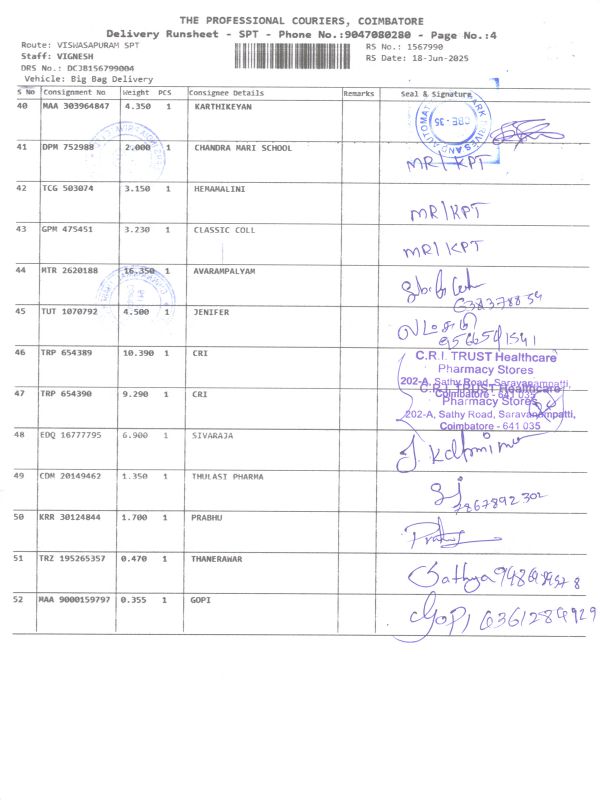 THE PROFESSIONAL COURIERS, COIMBATORE
Delivery Runsheet - SPT - Phone No.:9047080280 - Page No.:4
Route: VISWASAPURAM SPT RS No.: 1567990
Staff: VIGNESH RS Date: 18-Jun-2025
DRS No.: DCJB156799004
Vehicle: Big Bag Delivery
S No Consignment No Weight PCS Consignee Details Remarks Seal & Signature
40 MAA 303964847 4.350 1 KARTHIKEYAN
CBE-35
41 DPM 752988 2.000 1 CHANDRA MARI SCHOOL MR/KPT
42 TCG 503074 3.150 1 HEMAMALINI MR/KPT
43 GPM 475451 3.230 1 CLASSIC COLL MR/KPT
44 MTR 2620188 16.350 1 AVARAMPALYAM
45 TUT 1070792 4.500 1 JENIFER
46 TRP 654389 10.390 1 CRI C.R.I. TRUST Healthcare
Pharmacy Stores
202-A, Sathy Road, Saravanampatti,
Coimbatore - 641 035
47 TRP 654390 9.290 1 CRI C.R.I. TRUST Healthcare
Pharmacy Stores
202-A, Sathy Road, Saravanampatti,
Coimbatore - 641 035
48 EDQ 16777795 6.900 1 SIVARAJA
49 CDM 20149462 1.350 1 THULASI PHARMA
7867892302
50 KRR 30124844 1.700 1 PRABHU
51 TRZ 195265357 0.470 1 THANERAWAR Sathya
52 MAA 9000159797 0.355 1 GOPI Gopi 6361284929